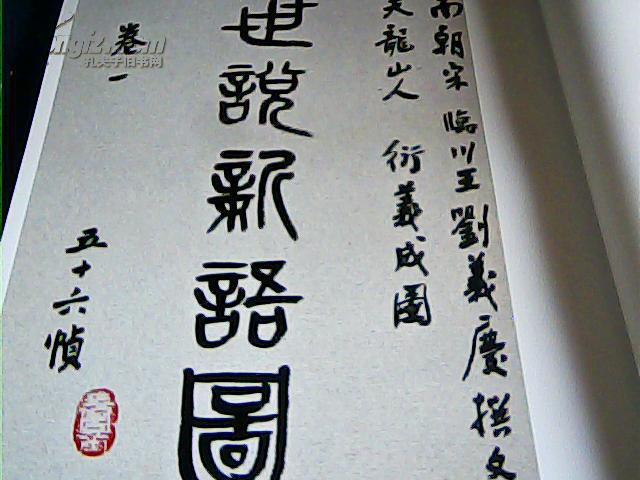 南朝宋 臨川王劉義慶撰文
天龍山人 衍義成圖
世說新語圖
卷一
五十六幀
孔夫子旧书网